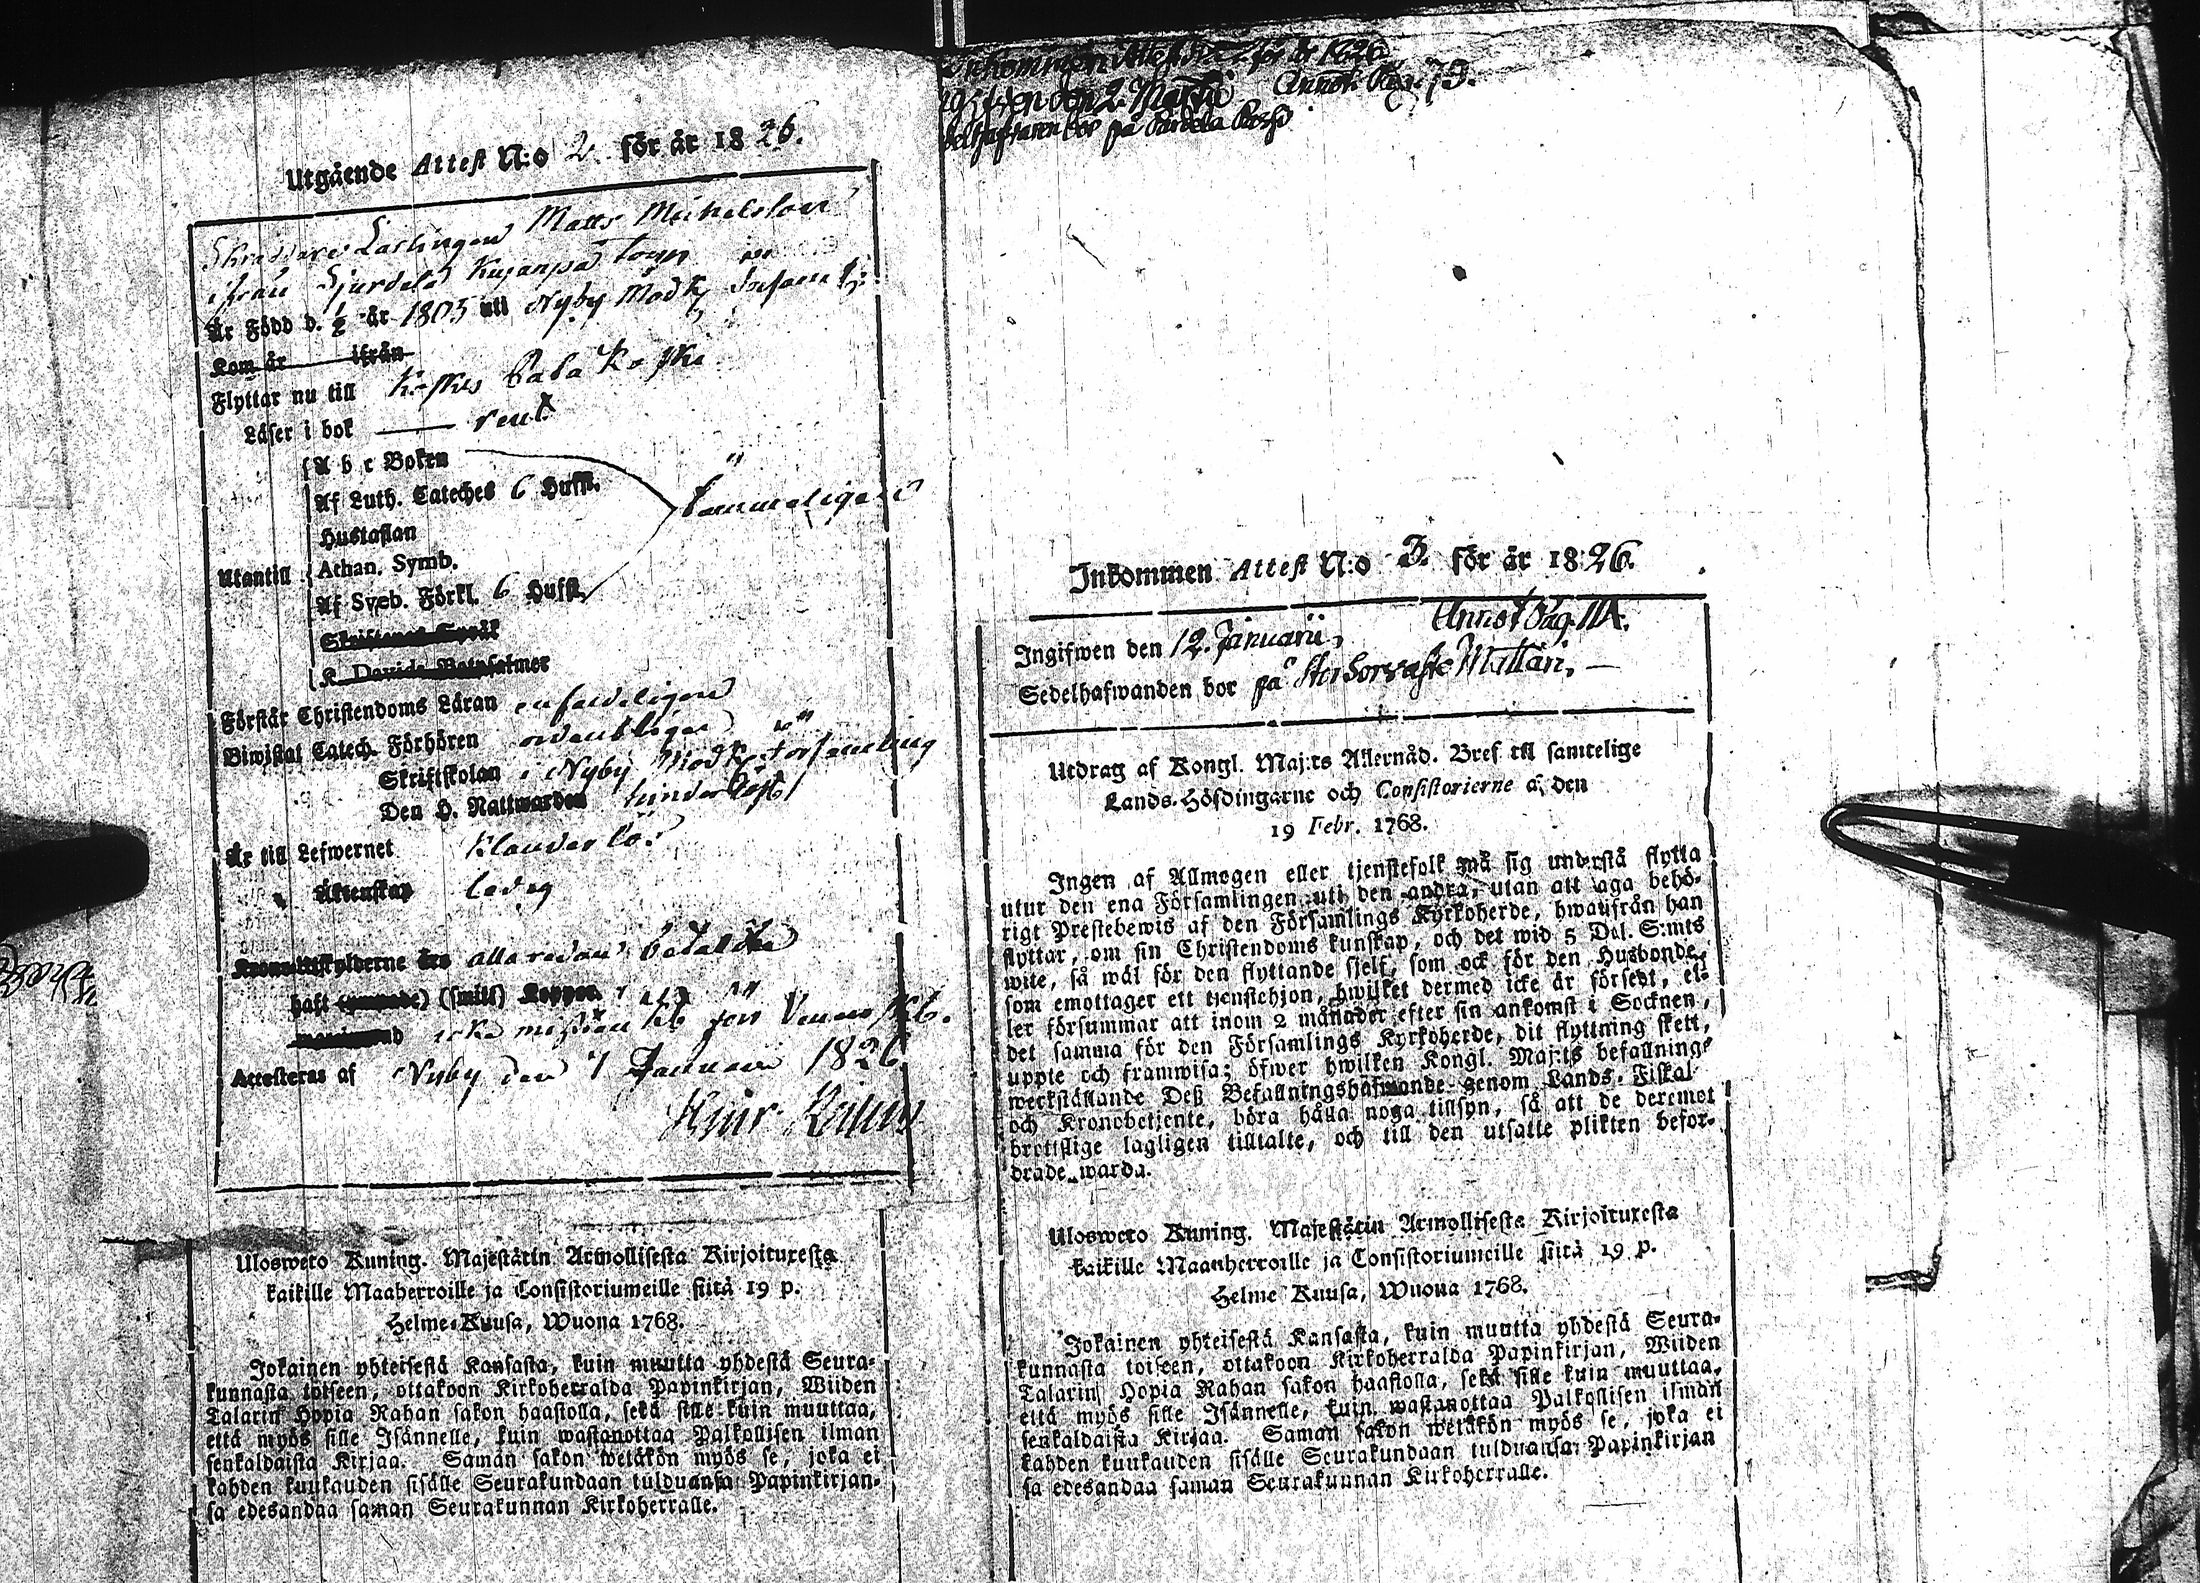 Utgående Attest N:o 2 för år 1826.
Skräddare Lärlingen Matts Michelsson
ifrån Kujanpä torp
Är Född d. 1/2 år 1805 uti Nyby Modk
Kom år ifrån
Flyttar nu till Koskis
Läser i bok rent
A b c Boken
Af Luth. Cateches 6 Hufst.
Hustaflan
Utantill
Athan. Symb.
Af Sveb. Förkl. 6 Hufst.
Förstår Christendoms Läran enfaldeligen
Biwistat Catech. Förhören ordentligen
Skriftskolan i Nyby Modk. Församling
Den H. Nattwarden
Är till Lefwernet klanderlös
Äktenskap ledig
allaredan betalde
haft (smitt) Koppor
icke
Attesteras af Nyby den 7 Januari 1826
Ulosweto Kuning. Majestätin Armollisesta Kirjoituxesta
kaikille Maaherroille ja Consistoriumeille siitä 19 p.
Helme-Kuusa, Wuona 1768.
Jokainen yhteisestä Kansasta, kuin muutta yhdestä Seura-
kunnasta toiseen, ottakoon Kirkoherralda Papinkirjan, Wiiden
Talarin Hopia Rahan sakon haastolla, sekä sille kuin muuttaa,
että myös sille Isännelle, kuin wastanottaa Palkollisen ilman
senkaldaista Kirjaa. Saman sakon wetäkön myös se, joka ei
kahden kuukauden sisälle Seurakundaan tulduansa Papinkirjan-
sa edesandaa saman Seurakunnan Kirkoherralle.
Inkommen Attest N:o 2 för år 1826
den 2 Martii Annot. Pag. 79.
bor på
Inkommen Attest N:o 3. för år 1826.
Annot Pag. 114.
Ingifwen den 12. Januarii,
Sedelhafwanden bor på Mattari,
Utdrag af Kongl. Maj:ts Allernåd. Bref till samtelige
Lands-Höfdingarne och Consistorierne a, den
19 Febr. 1768.
Ingen af Allmogen eller tjenstefolk må sig understå flytta
utur den ena Församlingen uti den andra, utan att äga behö-
rigt Prestebewis af den Församlings Kyrkoherde, hwaufrån han
flyttar, om sin Christendoms kunskap, och det wid 5 Dal. S:mts
wite, så wäl för den flyttande sjelf, som ock för den Husbonde,
som emottager ett tjenstehjon, hwilket dermed icke är försedt, el-
ler försummar att inom 2 månader efter sin ankomst i Socknen,
det samma för den Församlings Kyrkoherde, dit flyttning skett,
uppte och framwisa; öfwer hwilken Kongl. Maj:ts befallnings
werkställande Deß Befallningshafwande genom Lands-Fiskal
och Kronobetjente, böra hålla noga tillsyn, så att de deremot
brottslige lagligen tilltalte, och till den utsatte plikten befor-
drade warda.
Ulosweto Kuning. Majestätin Armollisesta Kirjoituxesta
kaikille Maanherroille ja Consistoriumeille siitä 19 p.
Helme Kuusa, Wuona 1768.
Jokainen yhteisestä Kansasta, kuin muutta yhdestä Seura-
kunnasta toiseen, ottakoon Kirkoherralda Papinkirjan, Wiiden
Talarin Hopia Rahan sakon haastolla, sekä sille kuin muuttaa,
että myös sille Isännelle, kuin wastanottaa Palkollisen ilman
senkaldaista Kirjaa. Saman sakon wetäkön myös se, joka ei
kahden kuukauden sisälle Seurakundaan tulduansa Papinkirjan
sa edesandaa saman Seurakunnan Kirkoherralle.